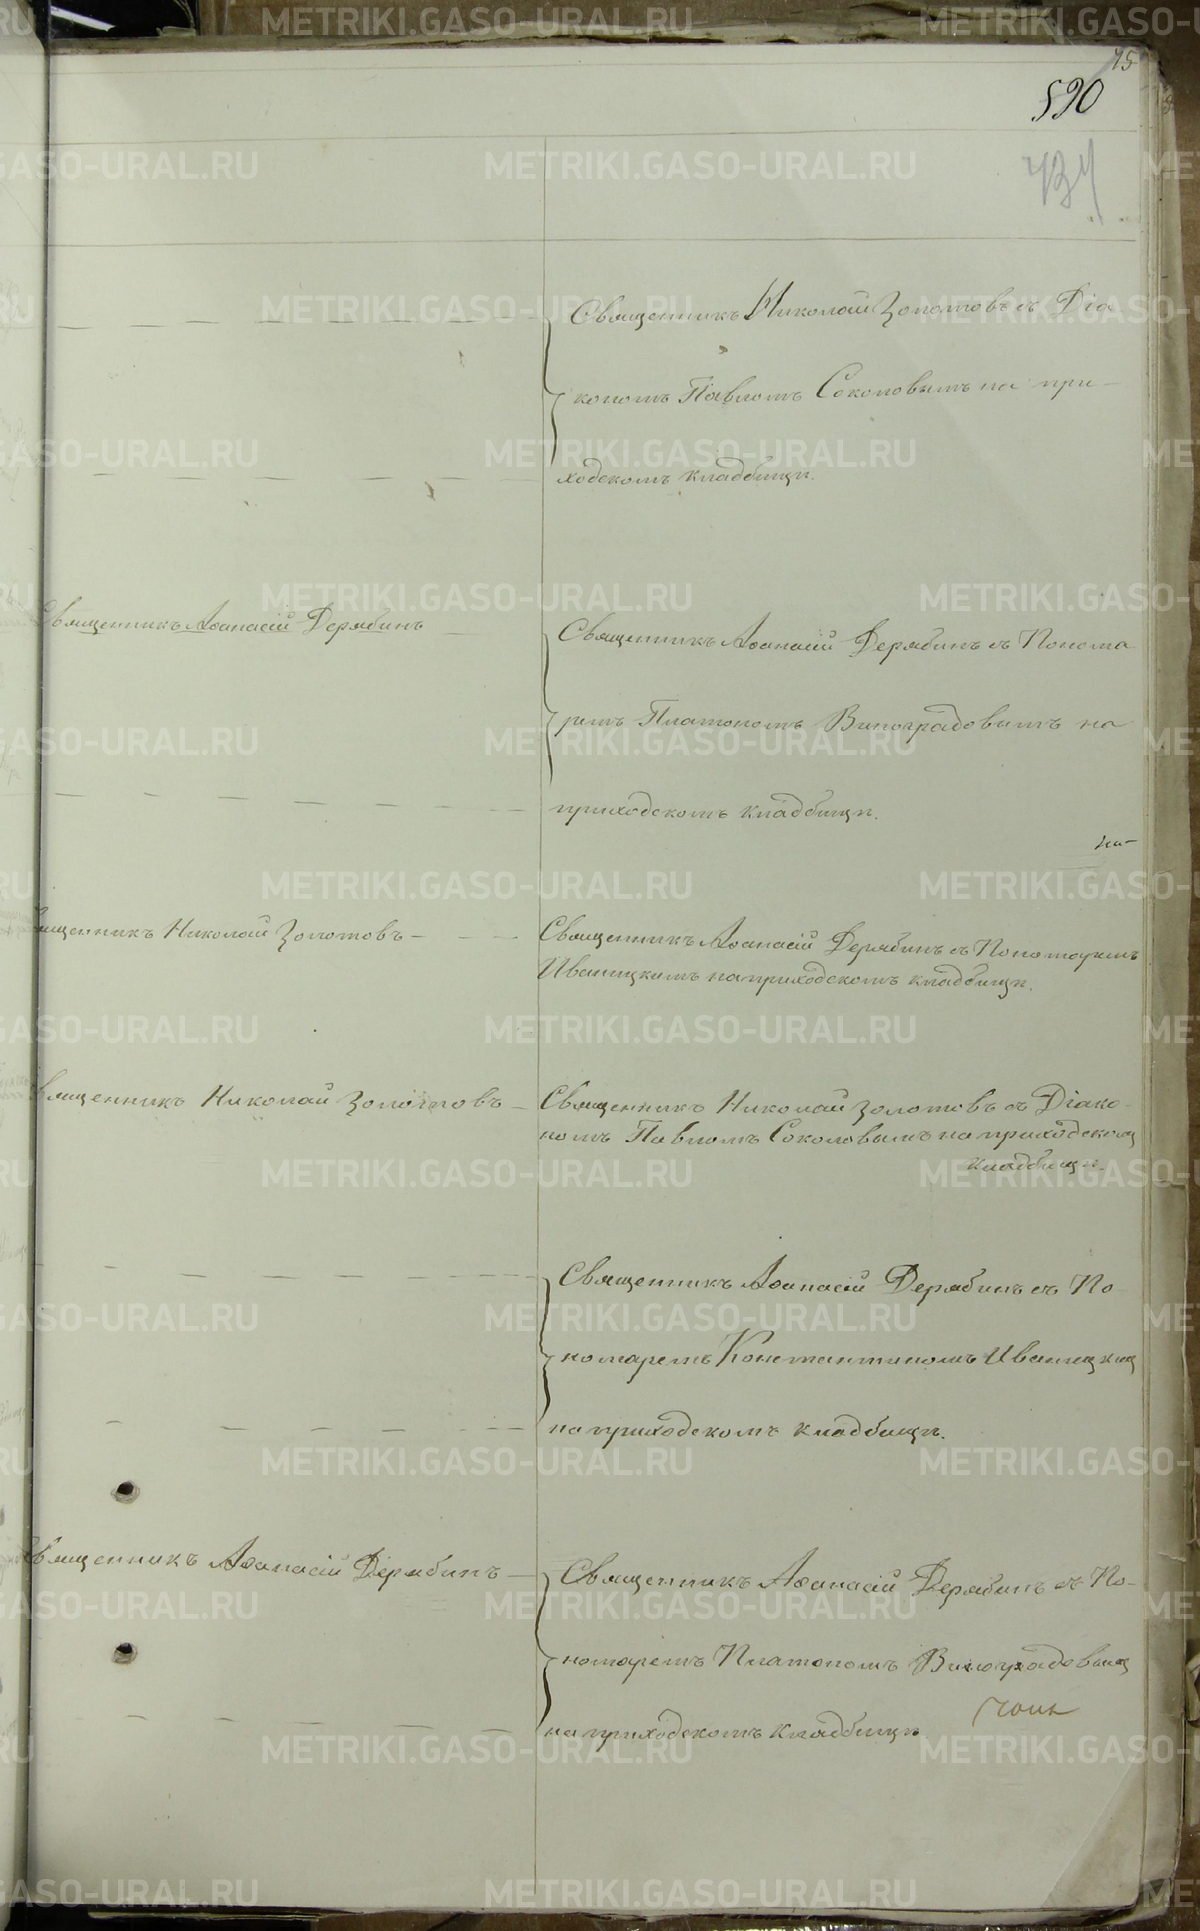 75
590
Священникъ Николай Золотовъ съ Діа
кономъ Павломъ Соколовымъ на при-
ходскомъ кладбищѣ.
Священникъ Аѳанасій Дерябинъ
Священникъ Аѳанасій Дерябинъ съ Понома
ремъ Платономъ Виноградовымъ на
приходскомъ кладбищѣ.
вященникъ Николай Золотовъ
Священникъ Аѳанасій Дерябинъ съ Пономаремъ
Иваницкимъ на приходскомъ кладбищѣ.
вященникъ Николай Золотовъ
Священникъ Николай Золотовъ съ Діако-
номъ Павломъ Соколовымъ на приходском
кладбищѣ.
Священникъ Аѳанасій Дерябинъ съ По
номаремъ Константиномъ Иваницким
на приходскомъ кладбищѣ.
вященникъ Аѳанасій Дерябинъ
Священникъ Аѳанасій Дерябинъ съ По-
номаремъ Платономъ Виноградовым
на приходскомъ кладбищѣ.
METRIKI.GASO-URAL.RU